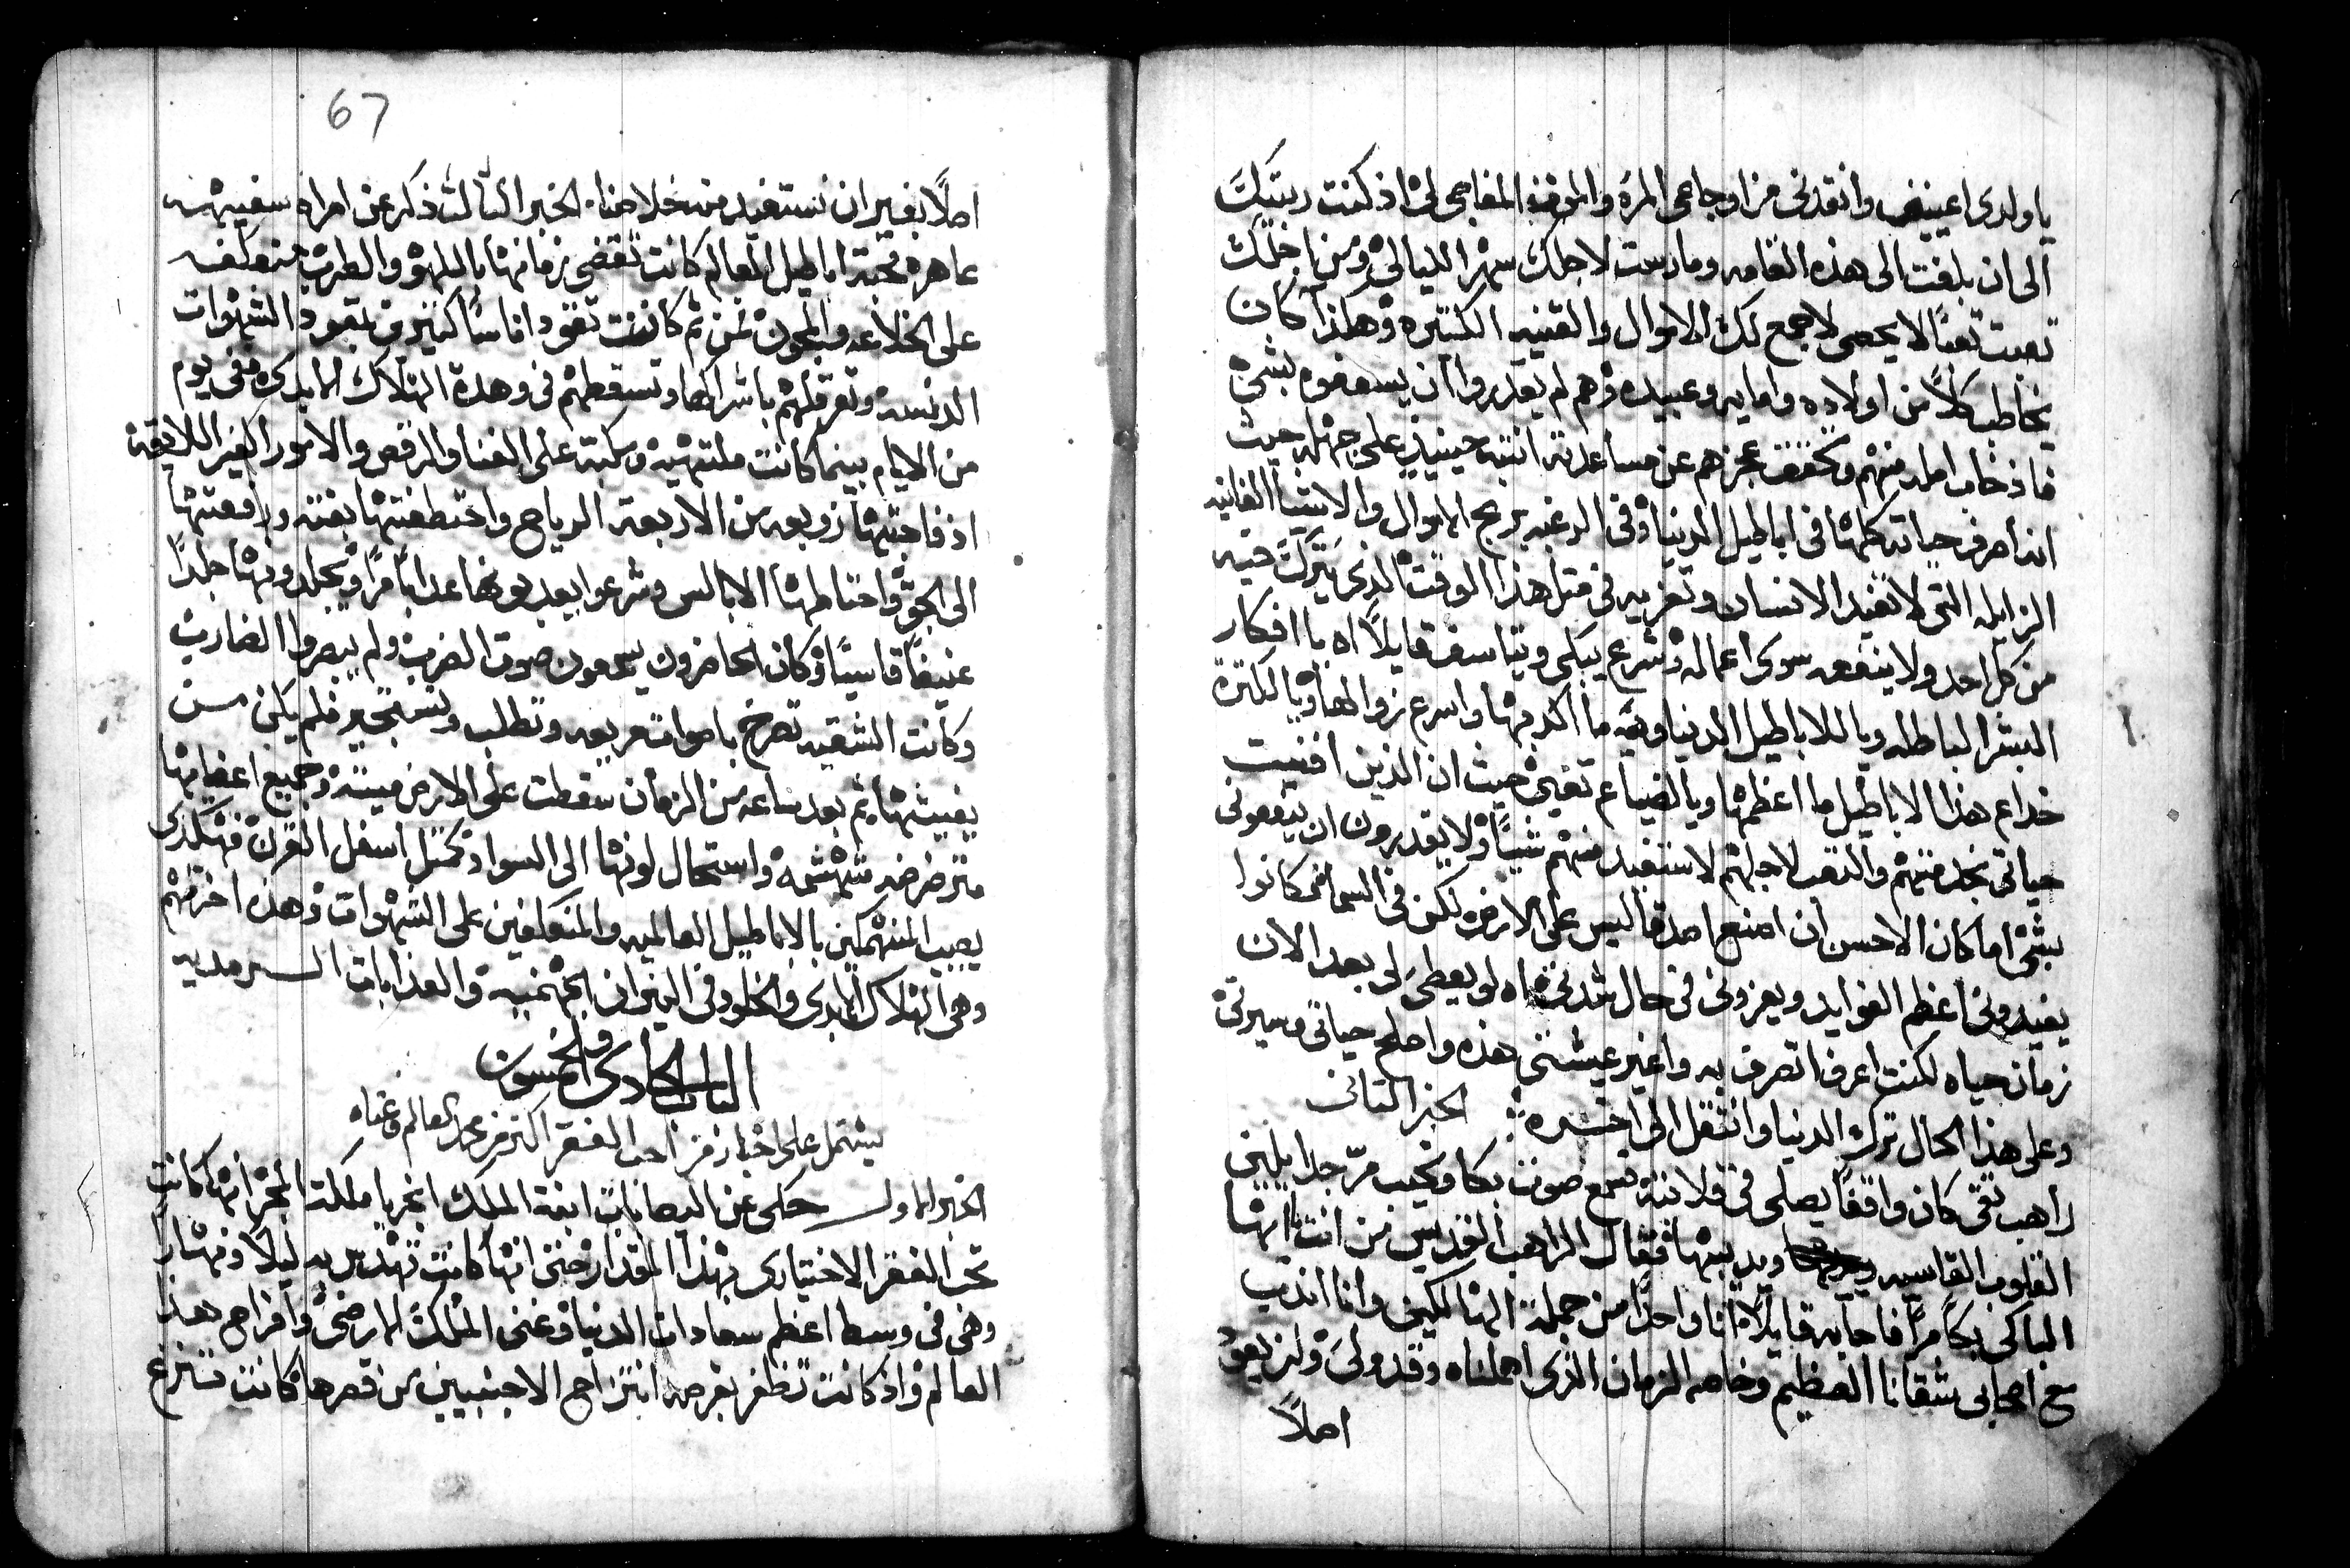 ياولدى اعينينى وانقدنى من اوجاعى المرة والموت المفاجى لى اذ كنت ربيتك
الى ان بلغت الى هذه القامه ومارست لاجلك سهر الليالى ومن اجلك
تعبت تعبًا لا يحصى لاجمع لك الاموال والقنيه الكتيره وهكذا كان
يخاطب كلاً من اولاده وامايه وعبيده وهم لم يقدروا ان يسعفوه بشى
فاذ خاب امله منهم وتحقق عجزهم عن مساعدته انتبه حينيذٍ على جهله حيث
انه اصرف حياته كلها فى اباطيل الدنيا وفى الرغبه بربح الاموال والاشيا الفانيه
الزايله التى لا تفيد الانسان وتعزيه فى متل هذا الوقت الدى يترك فيه
من كل احد ولا ينفعه سوى اعماله وشرع يبكى ويتاسف قايلاً اه يا افكار
البشر الباطله ويا للاباطيل الدنياويه ما اكدبها واسرع زوالها ويا لكترة
خداع هذا الاباطيل ما اعظمها ويا لضياع تعبى حيث ان الذين افنيت
حياتى بخدمتهم والتعب لاجلهم لا ستفيد منهم شيًا ولا يقدرون ان ينفعونى
بشى اما كان الاحسن ان اصنع اصدقا ليس على الارض لكن فى السما فكانوا
يفيدونى اعظم الفوايد ويعزونى فى حال شدتى اه لو يعطى لى بعد الان
زمان حياه لكنت اعرف اتصرف به واغير عيشتى هذه واصلح حياتى وسيرتى
وعلى هذا الحال ترك الدنيا وانتقل الى اخره الخبر التانى
راهب تقى كان واقفًا يصلى فى قلايته سمع صوت بكا ونحيب مرّ جدا يلين
القلوب القاسيه ويديبها فقال الراهب القديس من انت ايها
الباكى بكًا مرًا فاجابه قايلاً انا واحدًا من جملة الهالكين وانا اندب
مع اصحابى شقانا العظيم وخاصه الزمان الذى اهملناه وقد ولى ولن يعود
اصلاً
67
اصلاً بغير ان نستفيد منه خلاصنا الخبر التالت ذكر عن امراه سفيهه
عاهره محبة اباطيل العالم كانت تقضى زمانها باللهو والطرب منعكفه
على الخلاعه والمجون ثم كانت تقود اناسًا كتيرين بقيود الشهوات
الدنسه وتعرقلهم باشراكها وتسقطهم فى وهدة الهلاك الابدى ففى يوم
من الايام بينما كانت ملتهيه وسكبة على الغنا والرقص والامور الغير اللايقه
اذ فاجتها زوبعه من الاربعة الرياح واختطفتها بغته ورفعتها
الى الجو واختاطها الابالس وشرعوا يعدبونها عدابًا مرًا ويجلدونها جلدًا
عنيفًا قاسيًا وكان الحاضرون يسمعون صوت الضرب ولم يبصروا الضارب
وكانت الشقيه تصرخ باصوات مريعه وتطلب وتستجير فلم يكن من
يغيتها ثم بعد ساعه من الزمان سقطت على الارض ميته وجميع اعضايها
مترضرضه متهشمه واستحال لونها الى السواد كمتل اسفل القرن فهكدى
يصيب المنهمكين بالاباطيل العالميه والمنعكفين على الشهوات وهذه اخرتهم
وهى الهلاك الابدى والخلود فى النيران الجهنميه والعذابات السرمديه
الباب الحادى والخمسون
يشتمل على اخبار من احب الفقر اكتر من مجد العالم وغناه
الخبر الاول حكى عن اليصابات ابنة الملك انحريا ملكة المجر انها كانت
تحب الفقر الاختيارى بهذا المقدار حتى انها كانت تهدس به ليلاً ونهارًا
وهى فى وسط اعظم سعادات الدنيا وغنى الملك الارضى وافراح هذا
العالم واذ كانت تظفر بفرصه انتزاح الاجنبيين من قصرها كانت تنزع